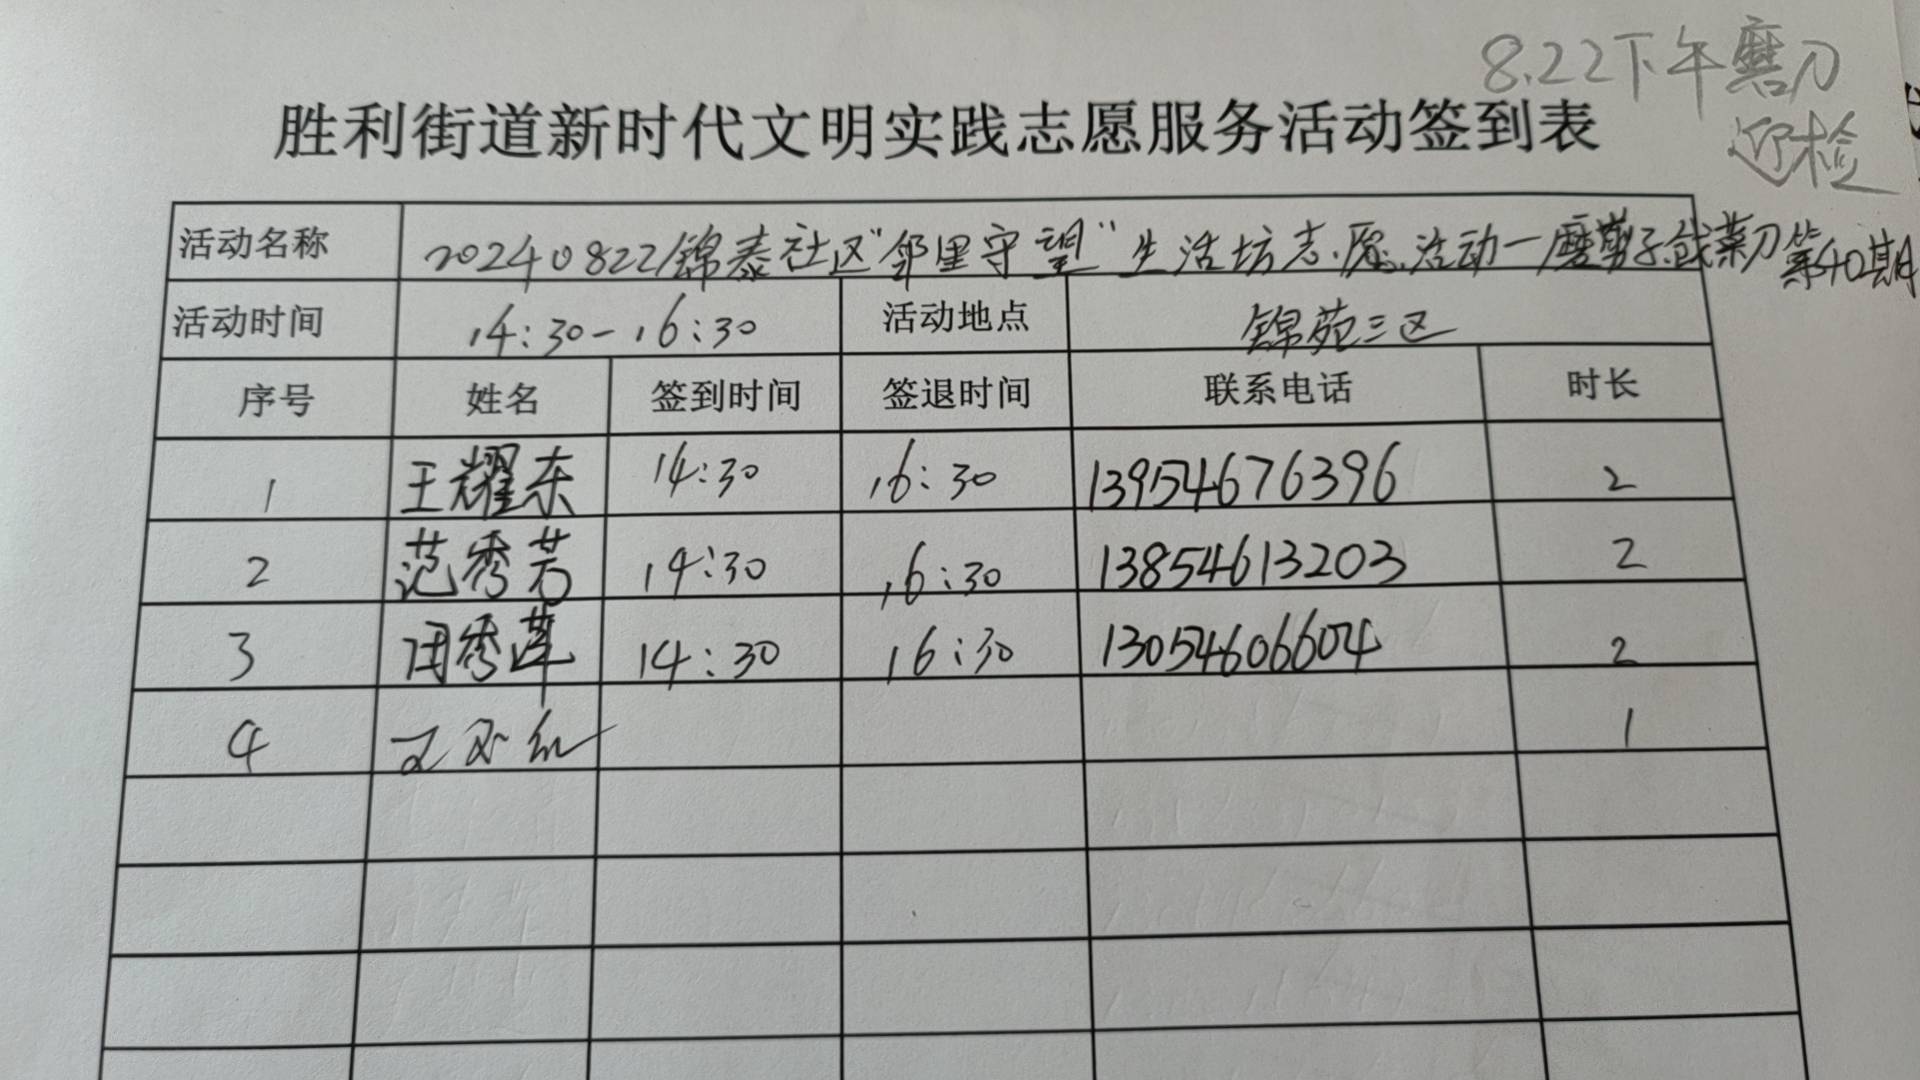 8.22下午磨刀
迎检
胜利街道新时代文明实践志愿服务活动签到表
活动名称 20240822锦泰社区“邻里守望”生活坊志愿活动一磨剪子戗菜刀第40期
活动时间 14:30-16:30 活动地点 锦苑三区
序号 姓名 签到时间 签退时间 联系电话 时长
1 王耀东 14:30 16:30 13954676396 2
2 范秀芳 14:30 16:30 13854613203 2
3 秀莲 14:30 16:30 13054606604 2
4 1